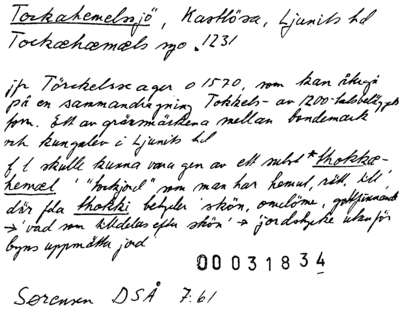 Tockahemelssjö, Kastlösa, Ljunits hd
Tockæhæmæls syo 1231
jfr Törckelssc ager o 1570, som kan återgå
på en sammandragning Tokkels- av 1200-talsbelägget
form. Ett av gränsmärkena mellan bondemark
och kungalev i Ljunits hd
f l skulle kunna vara gen av ett subst *thokkæ-
hemæl ' "torkjord" som man har hemul, rätt, till',
där fda thokki betyder 'skön, omdöme, godtfinnande'
→ 'vad som tilldelas efter skön' → 'jordstycke utanför
byns uppmätta jord'
00031834
Sørensen DSÅ 7:61